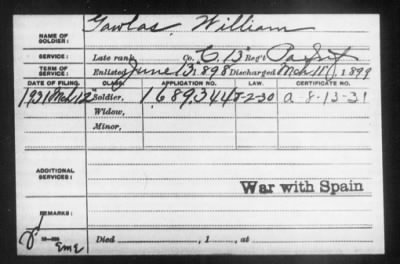 NAME OF SOLDIER: Gawlas, William
SERVICE: Late rank, Co. C, 13 Reg't Pa Inf
TERM OF SERVICE: Enlisted June 13, 1898 Discharged Mch 11, 1899
DATE OF FILING. CLASS. APPLICATION NO. LAW. CERTIFICATE NO.
1931 Mch 12 Soldier, 1,689,344 6-2-30 a 8-13-31
Widow,
Minor,
ADDITIONAL SERVICES:
War with Spain
REMARKS:
EME
Died , 1 , at